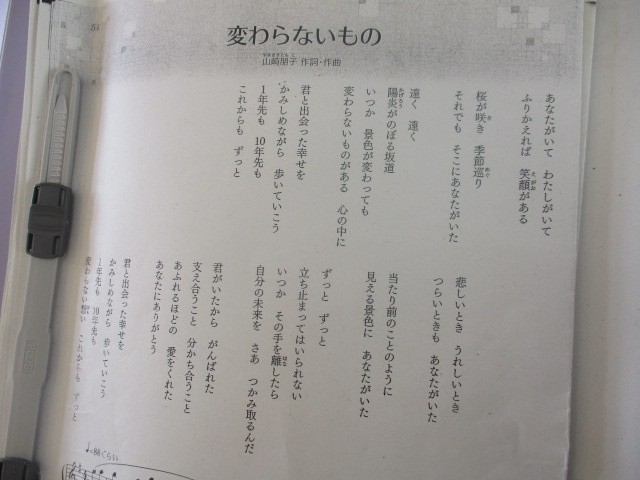 変わらないもの
山崎朋子 作詞・作曲
あなたがいて わたしがいて
ふりかえれば 笑顔がある
桜が咲き 季節巡り
それでも そこにあなたがいた
遠く 遠く
陽炎がのぼる坂道
いつか 景色が変わっても
変わらないものがある 心の中に
君と出会った幸せを
かみしめながら 歩いていこう
1年先も 10年先も
これからも ずっと
悲しいとき うれしいとき
つらいときも あなたがいた
当たり前のことのように
見える景色に あなたがいた
ずっと ずっと
立ち止まってはいられない
いつか その手を離したら
自分の未来を さあ つかみ取るんだ
君がいたから がんばれた
支え合うこと 分かち合うこと
あふれるほどの 愛をくれた
あなたにありがとう
君と出会った幸せを
かみしめながら 歩いていこう
1年先も 10年先も
変わらない想い これからも ずっと